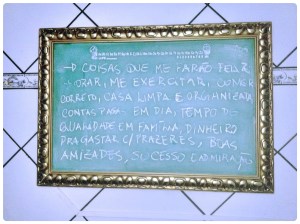 → COISAS QUE ME FARÃO FELIZ
ORAR, ME EXERCITAR, COMER
CORRETO, CASA LIMPA E ORGANIZADA,
CONTAS PAGAS EM DIA, TEMPO
QUALIDADE EM FAMÍLIA, DINHEIRO
PRA GASTAR C/ PRAZERES, BOAS
AMIZADES, SUCESSO